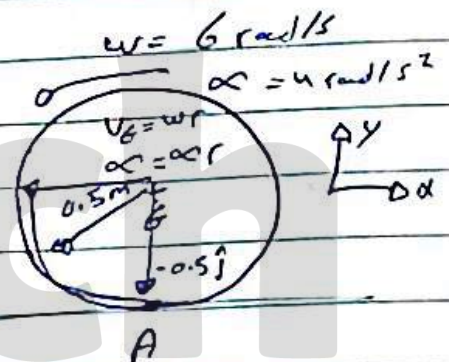 w = 6 rad/s
α = 4 rad/s²
V_G = wr
α = αr
y
0.5m
G
x
-0.5ĵ
A